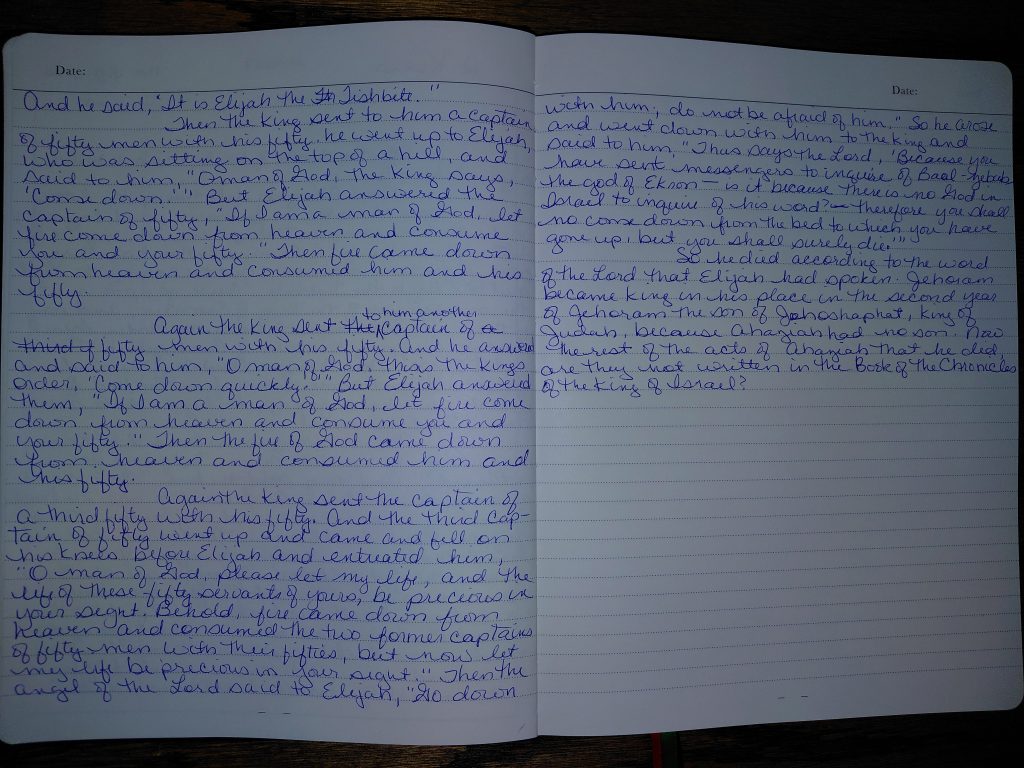 Date:
And he said, "It is Elijah the Th Tishbite."
Then the king sent to him a captain
of fifty men with his fifty. he went up to Elijah,
who was sitting on the top of a hill, and
said to him, "O man of God, the king says,
'Come down.'" But Elijah answered the
captain of fifty, "If I am a man of God, let
fire come down from heaven and consume
you and your fifty." Then fire came down
from heaven and consumed him and his
fifty.
to him another
Again the king sent the captain of a
third f fifty men with his fifty. And he answered
and said to him, "O man of God, thus the kings
order, 'Come down quickly.'" But Elijah answered
them, "If I am a man of God, let fire come
down from heaven and consume you and
your fifty." Then the fire of God came down
from heaven and consumed him and
his fifty.
Again the king sent the captain of
a third fifty with his fifty. And the third cap-
tain of fifty went up and came and fell on
his knees before Elijah and entreated him,
"O man of God, please let my life, and the
life of these fifty servants of yours, be precious in
your sight. Behold, fire came down from
heaven and consumed the two former captains
of fifty men with their fifties, but now let
my life be precious in your sight." Then the
angel of the Lord said to Elijah, "Go down
Date:
with him; do not be afraid of him." So he arose
and went down with him to the king and
said to him, "Thus says the Lord, 'Because you
have sent messengers to inquire of Baal-
the god of Ekron — is it because there is no God in
Israel to inquire of his word? — therefore you shall
no come down from the bed to which you have
gone up, but you shall surely die.'"
So he died according to the word
of the Lord that Elijah had spoken. Jehoram
became king in his place in the second year
of Jehoram the son of Jehoshaphat, king of
Judah, because Ahaziah had no son. Now
the rest of the acts of Ahaziah that he did,
are they not written in the Book of the Chronicles
of the King of Israel?